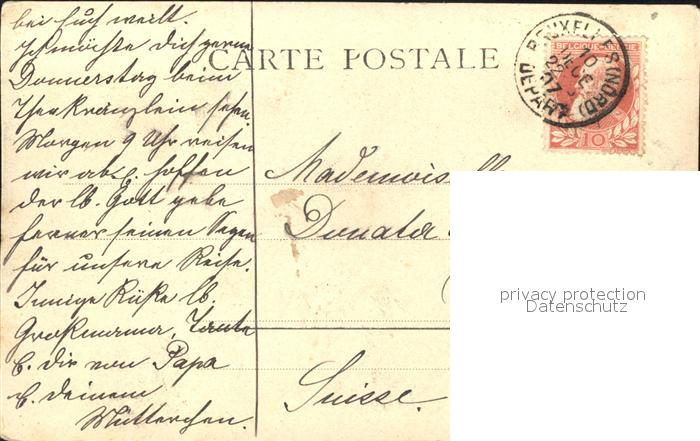 bei Euch weilt.
Ich möchte Dich gerne
Donnerstag beim
Theekränzlein sehen.
Morgen 9 Uhr reisen
wir ab &. hoffen
der lb. Gott gebe
ferner seinen Segen
für unsere Reise.
Innige Küße lb.
Großmama, Tante
&. dir von Papa
&. deinem
Mütterchen.
CARTE POSTALE
BRUXELLES (NORD)
DEPART
BELGIQUE-BELGIË
10
Mademoiselle
Donata
Suisse.
privacy protection
Datenschutz